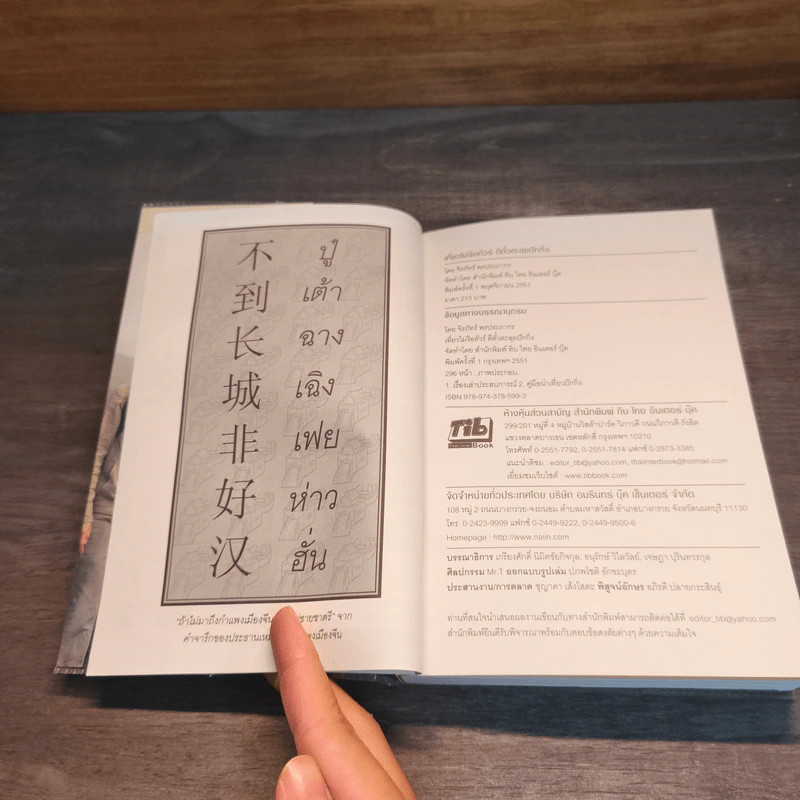 不
到
长
城
非
好
汉
ปู๋
เต้า
ฉาง
เฉิง
เฟย
ห่าว
ฮั่น
"ถ้าไม่มาถึงกำแพงเมืองจีน ชายชาตรี" จาก
คำจารึกของประธานเหม เมืองจีน
เที่ยวไม่ง้อทัวร์ ตีตั๋วตะลุยปักกิ่ง
โดย จิรภัทร์ พรประภากร
จัดทำโดย สำนักพิมพ์ ทิบ ไทย อินเตอร์ บุ๊ค
พิมพ์ครั้งที่ 1 พฤศจิกายน 2551
ราคา 215 บาท
ข้อมูลทางบรรณานุกรม
โดย จิรภัทร์ พรประภากร
เที่ยวไม่ง้อทัวร์ ตีตั๋วตะลุยปักกิ่ง
จัดทำโดย สำนักพิมพ์ ทิบ ไทย อินเตอร์ บุ๊ค
พิมพ์ครั้งที่ 1 กรุงเทพฯ 2551
296 หน้า : ภาพประกอบ.
1. เรื่องเล่าประสบการณ์ 2. คู่มือนำเที่ยวปักกิ่ง
ISBN 978-974-378-599-3
Tib
Book
ห้างหุ้นส่วนสามัญ สำนักพิมพ์ ทิบ ไทย อินเตอร์ บุ๊ค
299/201 หมู่ที่ 4 หมู่บ้านวิสต้าปาร์ค วิภาวดี ถนนวิภาวดี-รังสิต
แขวงตลาดบางเขน เขตหลักสี่ กรุงเทพฯ 10210
โทรศัพท์ 0-2551-7792, 0-2551-7814 แฟกซ์ 0-2973-3385
แนะนำติชม : editor_tib@yahoo.com, thaiinterbook@hotmail.com
เยี่ยมชมเว็บไซต์ : www.tibbook.com
จัดจำหน่ายทั่วประเทศโดย บริษัท อมรินทร์ บุ๊ค เซ็นเตอร์ จำกัด
108 หมู่ 2 ถนนบางกรวย-จงถนอม ตำบลมหาสวัสดิ์ อำเภอบางกรวย จังหวัดนนทบุรี 11130
โทร. 0-2423-9999 แฟกซ์ 0-2449-9222, 0-2449-9500-6
Homepage : http://www.naiin.com
บรรณาธิการ เกรียงศักดิ์ นิมิตชัยกิจกุล, อนุรักษ์ วิไลวัลย์, เจษฎา ปุรินทวรกุล
ศิลปกรรม Mr.T ออกแบบรูปเล่ม ปภพโชติ อักขะบุตร
ประสานงาน/การตลาด ชุญาดา เส็งโสตะ พิสูจน์อักษร อภิรดี ปลายกระสินธุ์
ท่านที่สนใจนำเสนอผลงานเขียนกับทางสำนักพิมพ์สามารถติดต่อได้ที่ editor_tib@yahoo.com
สำนักพิมพ์ยินดีรับพิจารณาพร้อมกับตอบข้อสงสัยต่างๆ ด้วยความเต็มใจ